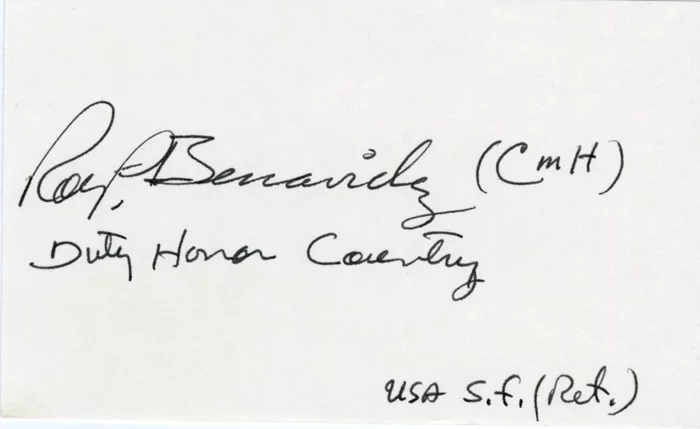 Roy P. Benavidez (CMH)
Duty Honor Country
USA S.F. (Ret.)